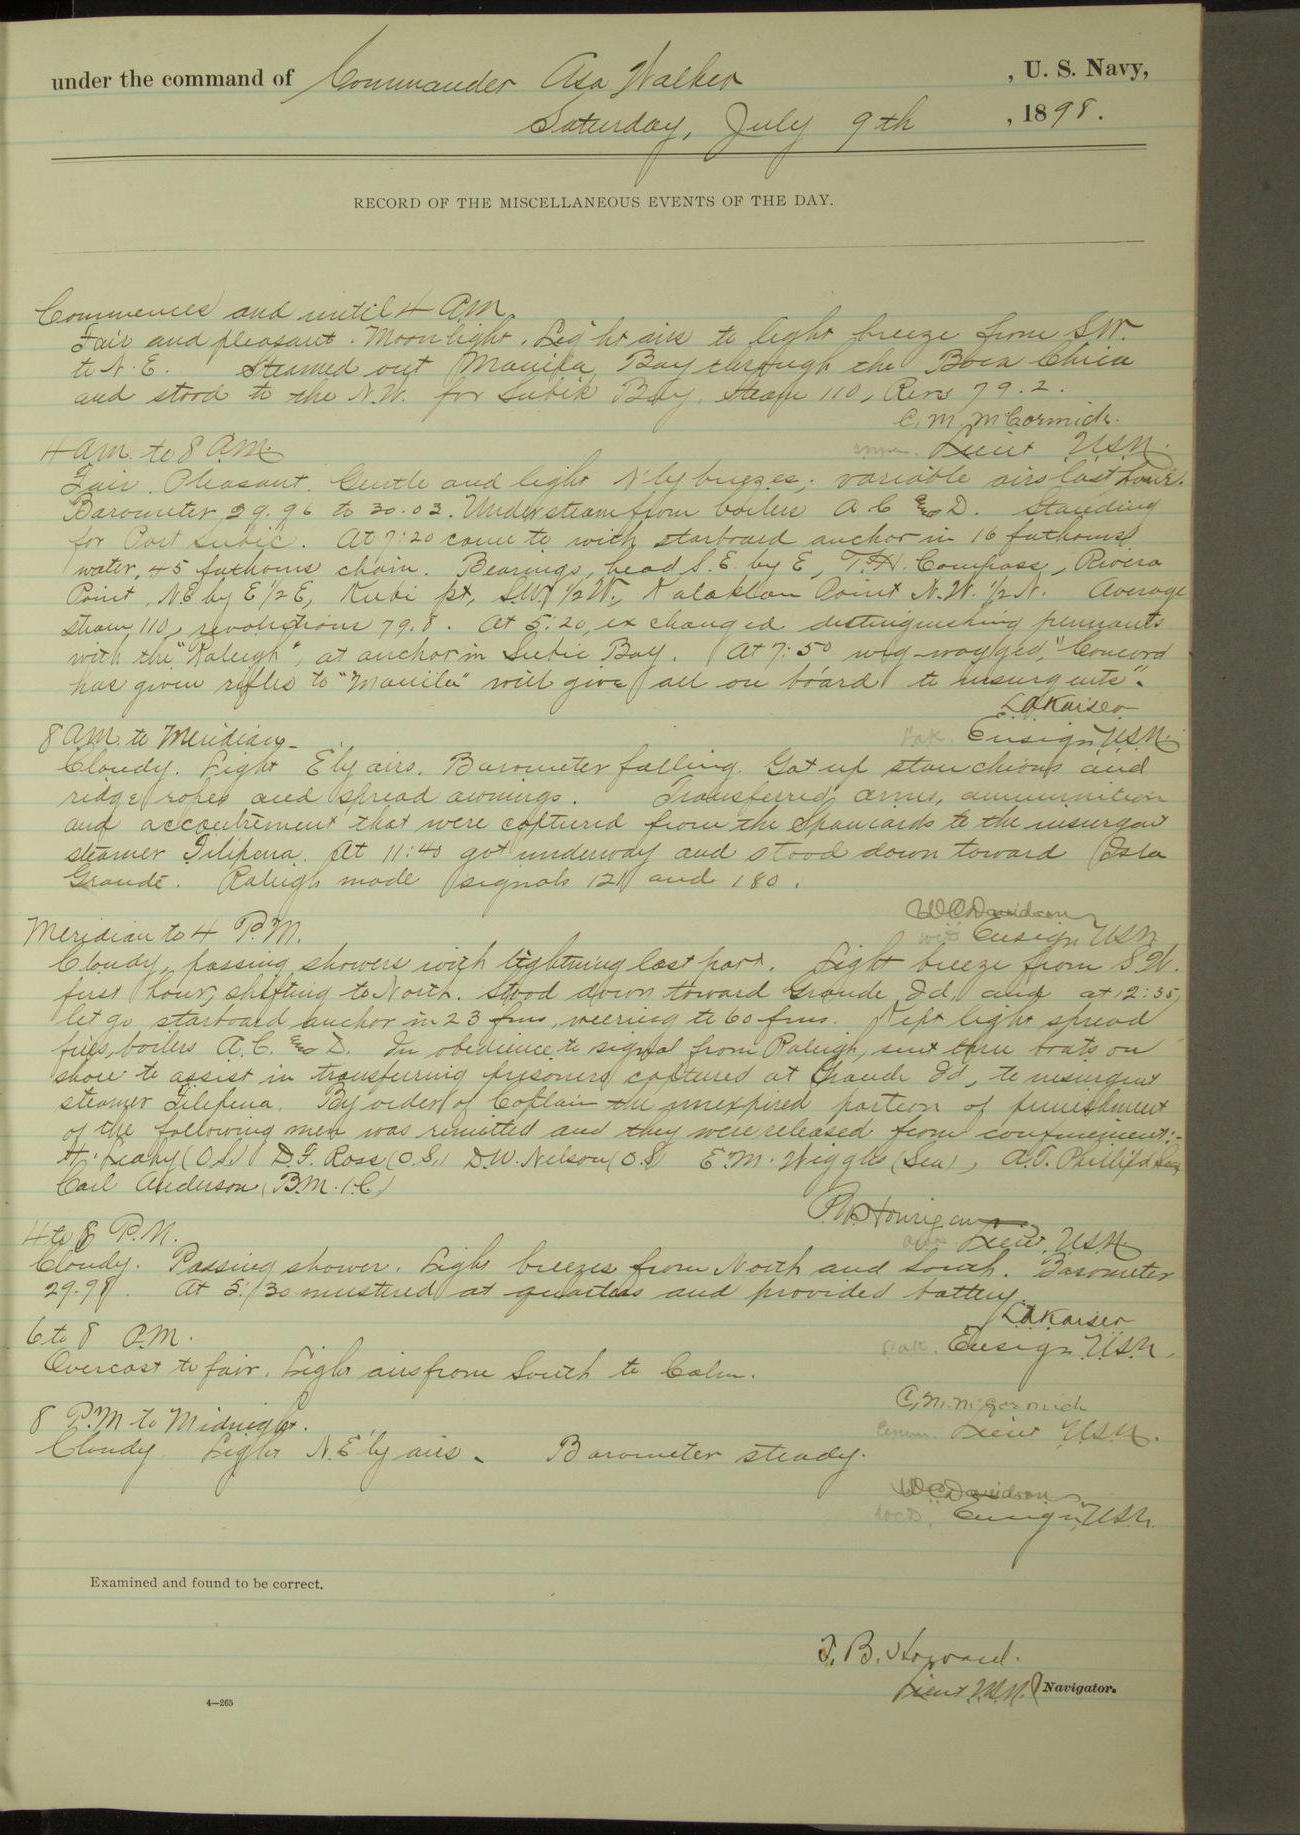 under the command of Commander Asa Walker , U. S. Navy,
Saturday, July 9th , 1898.
RECORD OF THE MISCELLANEOUS EVENTS OF THE DAY.
Commences and until 4 A.M.
Fair and pleasant. Moonlight. Light airs to light breeze from S.W.
to N.E. Steamed out Manila Bay through the Boca Chica
and stood to the N.W. for Subik Bay. Steam 110, Revs 79.2.
C. M. McCormick.
Lieut U.S.N.
4 A.M. to 8 A.M.
Fair. Pleasant. Gentle and light N'ly breezes; variable airs last hour.
Barometer 29.96 to 30.03. Under steam from boilers A C and D. Standing
for Port Subic. At 7:20 came to with starboard anchor in 16 fathoms
water, 45 fathoms chain. Bearings, head S.E. by E, T.H. Compass, Rivera
Point, N.E by E 1/2 E, Kubi pt, S.W 1/2 W., Kalaklan Point N.W. 1/2 N. Average
steam, 110, revolutions 79.8. At 5:20, exchanged distinguishing pennants
with the "Raleigh", at anchor in Subic Bay. At 7:50 wig-wagged, "Concord
has given rifles to "Manila" will give all on board to insurgents".
L A Kaiser
Ensign, U.S.N.
8 A.M. to Meridian
Cloudy. Light E'ly airs. Barometer falling. Got up stanchions and
ridge ropes and spread awnings. Transferred arms, ammunition
and accoutrement that were captured from the Spaniards to the insurgent
steamer Filipena. At 11:40 got underway and stood down toward Isla
Grande. Raleigh made signals 121 and 180.
W C Davidson
WCD Ensign USN
Meridian to 4 P.M.
Cloudy, passing showers with lightning last part. Light breeze from S W.
first hour, shifting to North. Stood down toward Grande Id, and at 12:35,
let go starboard anchor in 23 fms, veering to 60 fms. Kept light spread
fires, boilers A.C. and D. In obedience to signal from Raleigh, sent three boats on
shore to assist in transferring prisoners captured at Grande Id, to insurgent
steamer Filipena. By order of Captain the unexpired portion of punishment
of the following men was remitted and they were released from confinement:-
H. Leahy (O.S.) D.F. Ross (O.S.) D.W. Nelson (O.S) E.M. Wiggles (Sea), A.T. Phillips
Carl Anderson (B.M. 1.C)
P W Hourigan
Lieut, U.S.N.
4 to 8 P.M.
Cloudy. Passing shower. Light breezes from North and South. Barometer
29.98. At 5:30 mustered at quarters and provided battery.
L A Kaiser
Ensign U.S.N.
6 to 8 P.M.
Overcast to fair. Light airs from South to Calm.
C. M. McCormick
Lieut U.S.N.
8 P.M to Midnight.
Cloudy. Light N.E'ly airs. Barometer steady.
W C Davidson
WCD. Ensign, U.S.N.
Examined and found to be correct.
T. B. Howard.
Lieut U.S.N. Navigator.
4—265